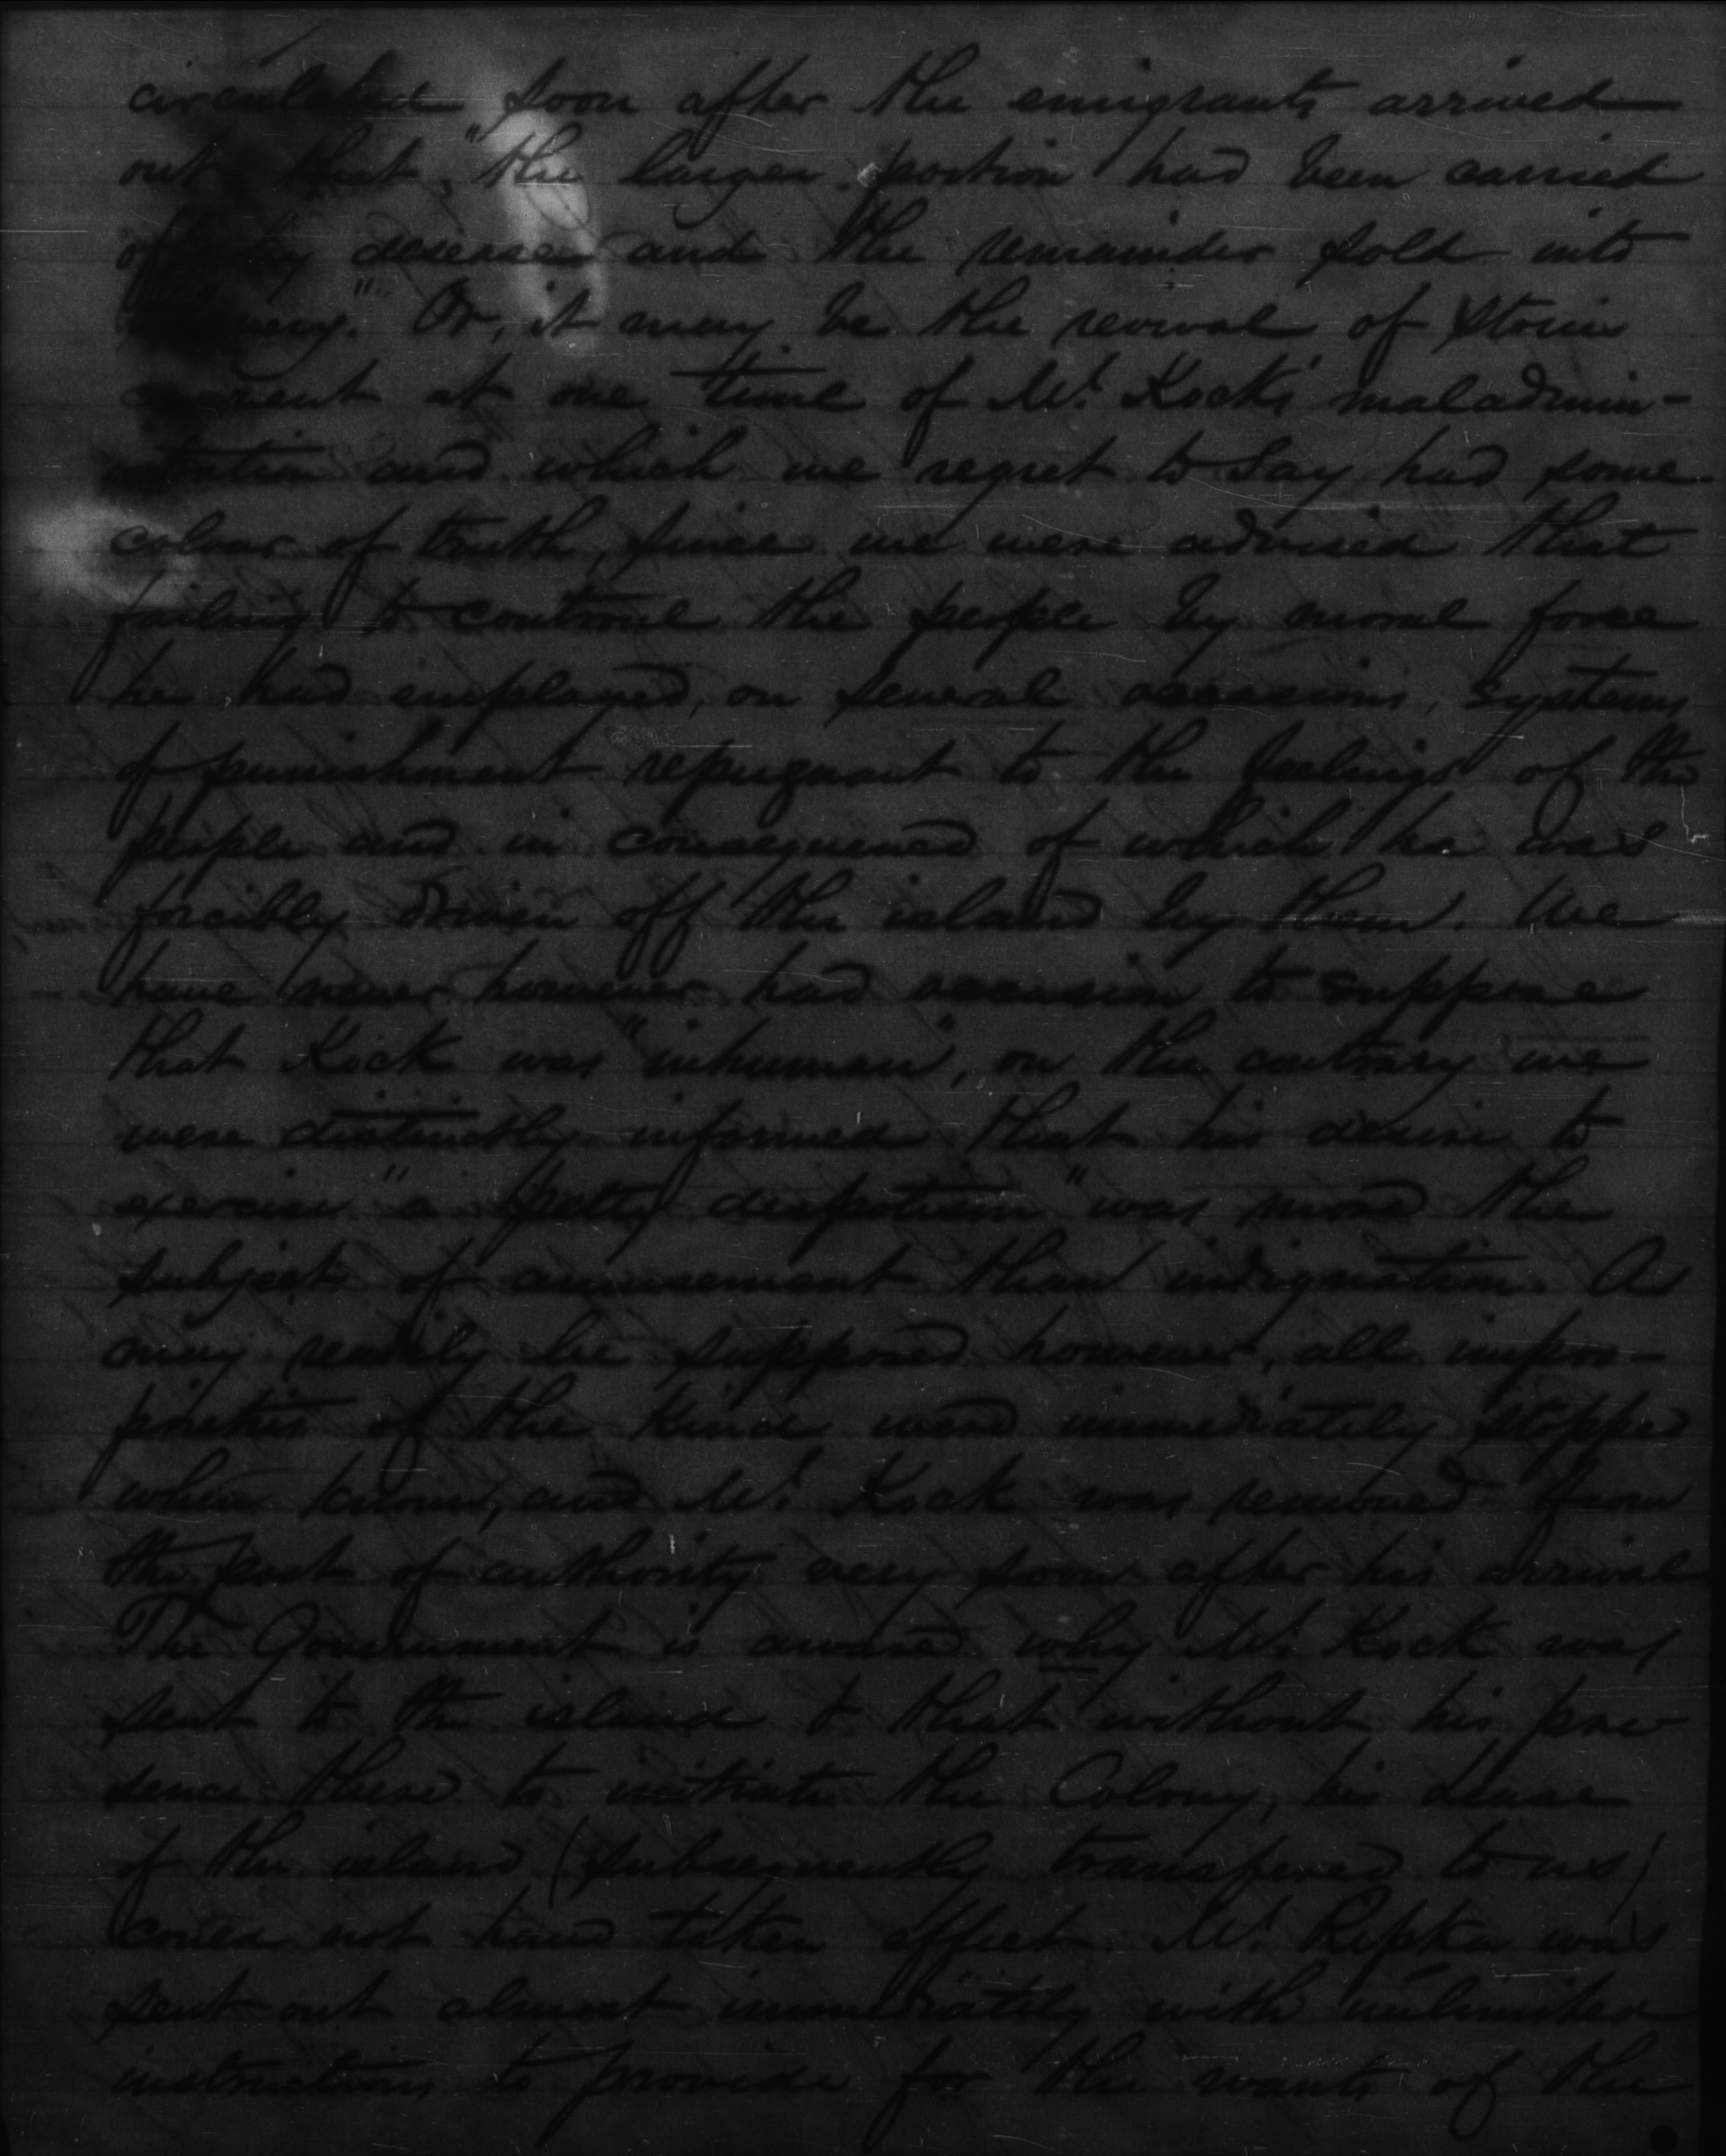 circulated soon after the emigrants arrived
out that, "the larger portion had been carried
off by desease and the remainder sold into
slavery." Or, it may be the revival of stories
current at one time of Mr. Kock's maladmin-
istration and which we regret to say had some
colour of truth, since we were advised that
failing to controul the people by moral force
he had employed, on several occasions, systems
of punishment repugnant to the feelings of the
people and in consequence of which he was
forcibly driven off the island by them. We
have never however had occasion to suppose
that Kock was "inhuman", on the contrary we
were distinctly informed that his desire to
exercise "a petty despotism" was more the
subject of amusement than indignation. As
may readily be supposed however, all impro-
prieties of the kind were immediately stopped
when known, and Mr. Kock was removed from
the seat of authority very soon after his arrival
The Government is aware why Mr. Kock was
sent to the island & that without his pre-
sence there to initiate the Colony, his lease
of the island (subsequently transfered to us)
could not have taken effect. Mr. Ripka was
sent out almost immediately with unlimited
instructions to provide for the wants of the